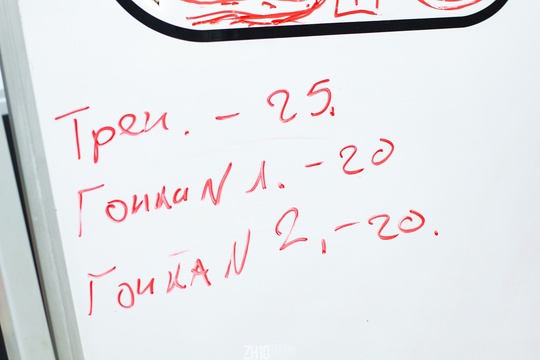 Трен. - 25.
Гонка N 1. - 20
Гонка N 2, - 20.